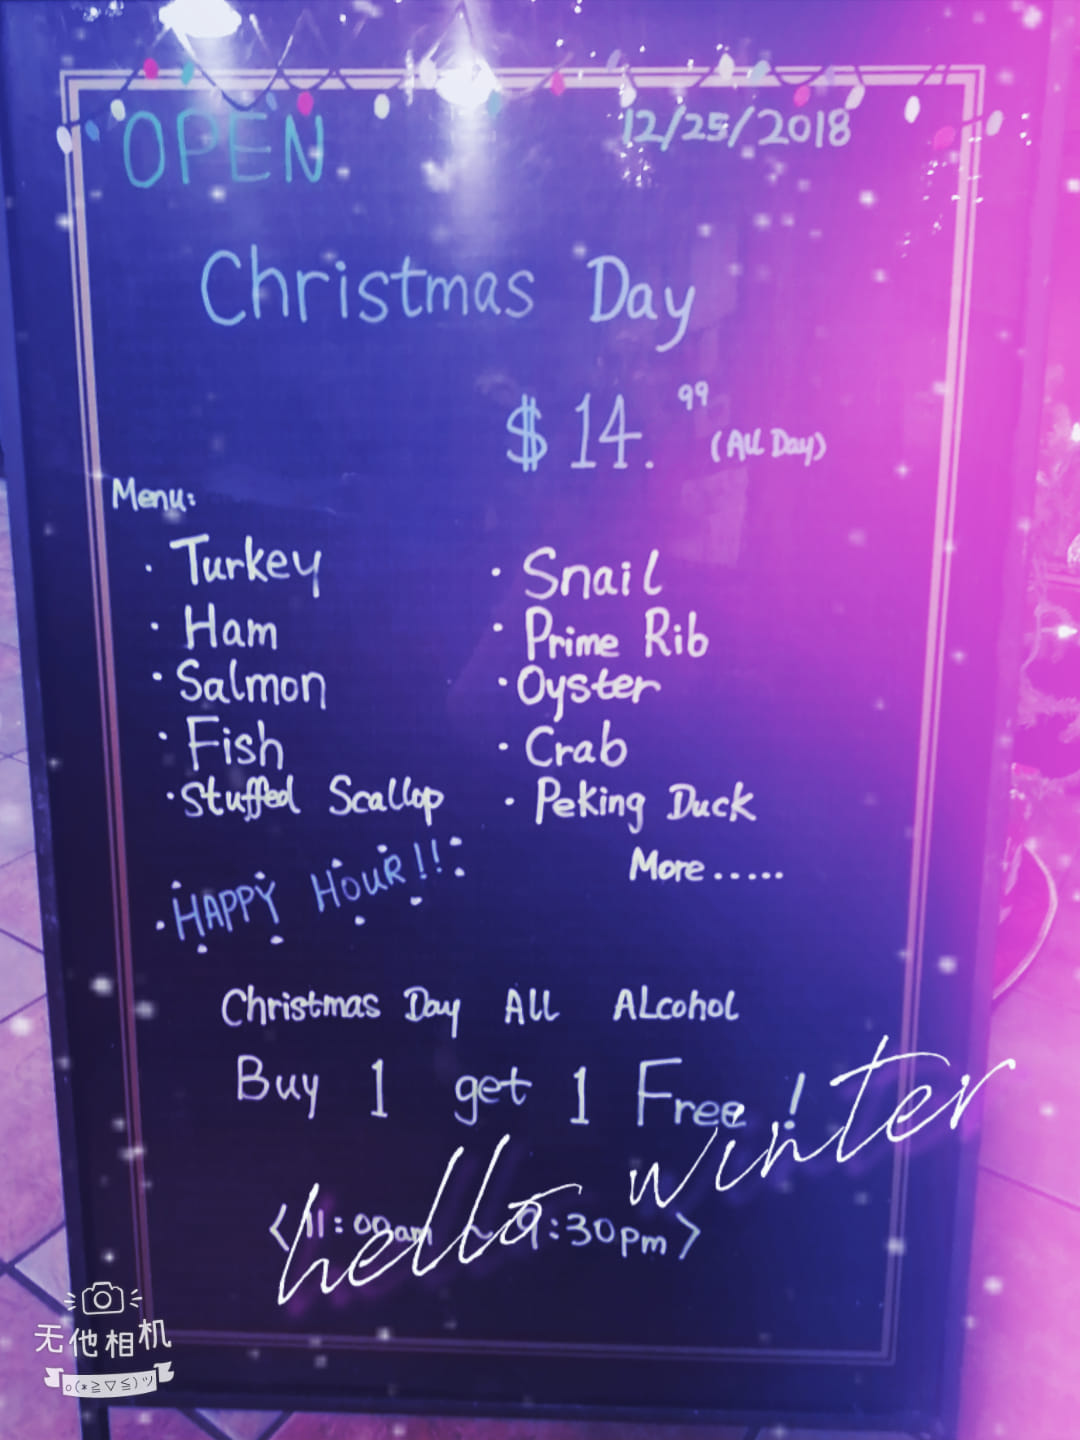 OPEN 12/25/2018
Christmas Day
$14.99 (All Day)
Menu:
· Turkey
· Snail
· Ham
· Prime Rib
· Salmon
· Oyster
· Fish
· Crab
· Stuffed Scallop
· Peking Duck
More.....
HAPPY HOUR!!
Christmas Day All ALcohol
Buy 1 get 1 Free !
<11:00am ~ 9:30pm>
hello winter
无他相机
o(*≧▽≦)ツ